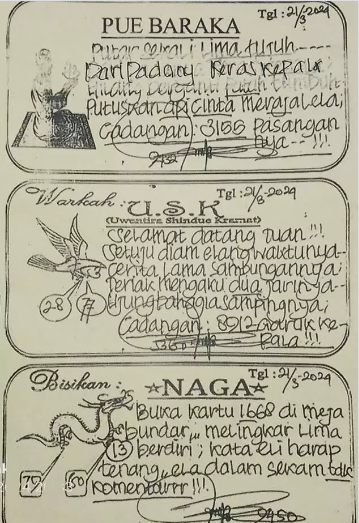 PUE BARAKA
Tgl: 21/3-2024
Putar sekali lima tujuh-----
Dari Padang Keras Kepala
Putuskan api cinta merajalela;
Cadangan: 3155 Pasangan
nya--!!!
Warkah:
U.S.K
Tgl: 21/3-2024
(Uwentira Shindue Kramat)
Selamat datang Tuan!!!
Setuju diam elang waktunya-
Cerita lama sambungannya;
mengaku dua jarinya--
sampingnya;
28
77
Cadangan: 8912 Garuk ke-
pala!!!
Bisikan:
☆NAGA☆
Tgl: 21/3-2024
Buka kartu 1668 di meja
bundar,, melingkar lima
13
berdiri; kata eli harap
tenang,, ela dalam sekam tdk
79
50
komentarrr!!!
9450